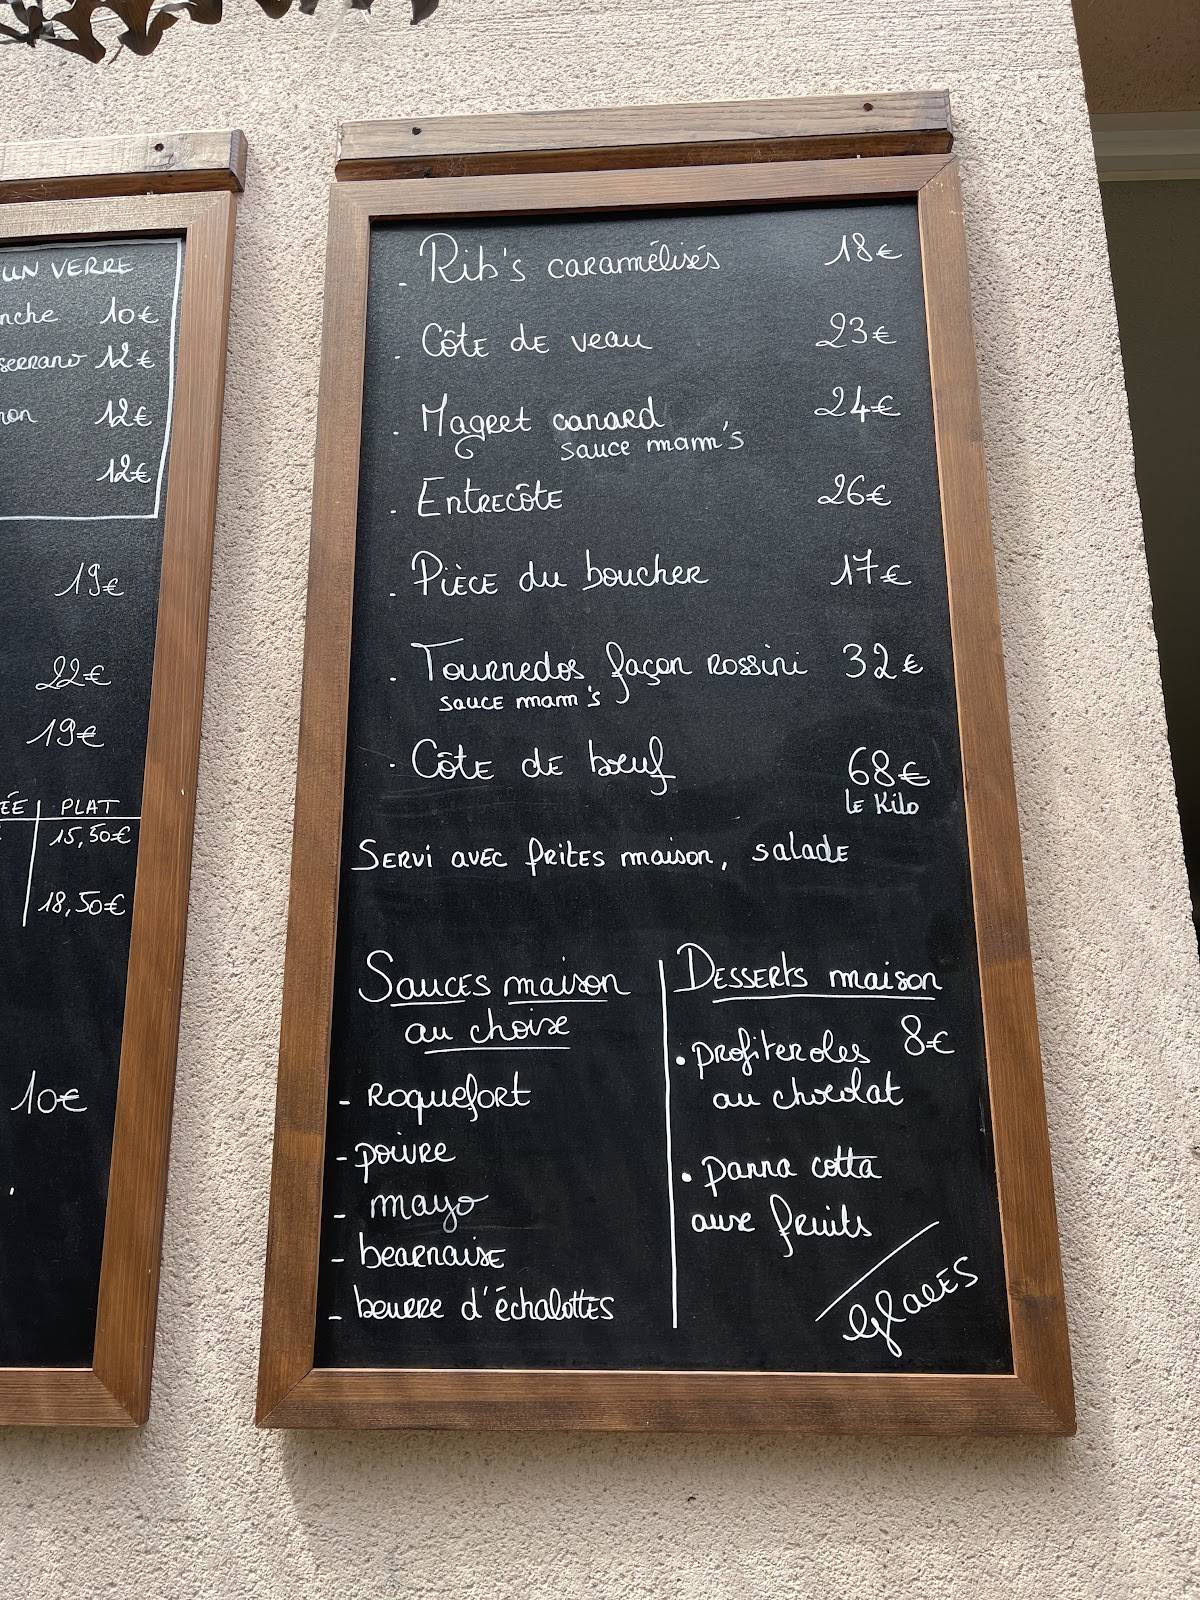 UN VERRE
nche 10€
serrano 12€
non 12€
12€
19€
22€
19€
ÉE PLAT
15,50€
18,50€
10€
. Rib's caramélisés 18€
. Côte de veau 23€
. Magret canard 24€
sauce mam's
. Entrecôte 26€
. Pièce du boucher 17€
. Tournedos façon rossini 32€
sauce mam's
. Côte de bœuf 68€
le Kilo
Servi avec frites maison, salade
Sauces maison
au choix
- roquefort
- poivre
- mayo
- bearnaise
- beurre d'échalottes
Desserts maison
• profiteroles 8€
au chocolat
• panna cotta
aux fruits
glaces